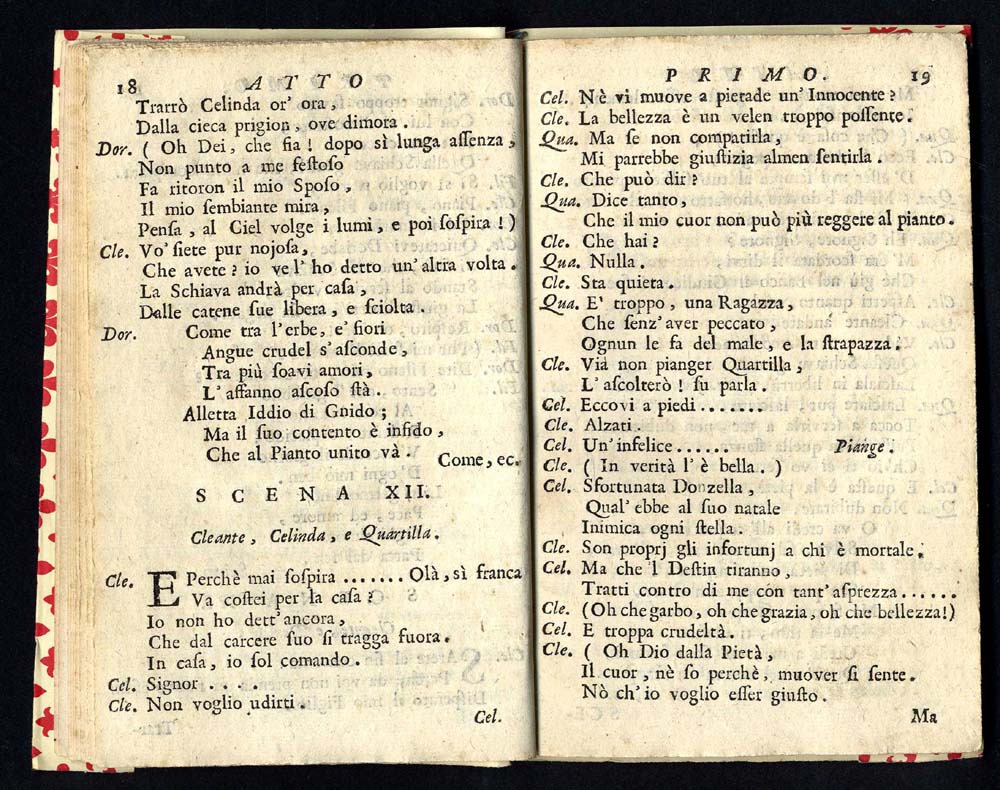 18 ATTO
Trarrò Celinda or' ora,
Dalla cieca prigion, ove dimora.
Dor. ( Oh Dei, che fia! dopo sì lunga aſſenza,
Non punto a me feſtoſo
Fa ritoron il mio Spoſo,
Il mio ſembiante mira,
Penſa, al Ciel volge i lumi, e poi ſoſpira!)
Cle. Vo' ſiete pur nojoſa,
Che avete? io ve l' ho detto un' altra volta.
La Schiava andrà per caſa,
Dalle catene ſue libera, e ſciolta.
Dor. Come tra l'erbe, e' fiori
Angue crudel s' aſconde,
Tra più ſoavi amori,
L' affanno aſcoſo ſtà.
Alletta Iddio di Gnido;
Ma il ſuo contento è infido,
Che al Pianto unito và.
Come, ec.
SCENA XII.
Cleante, Celinda, e Quartilla.
Cle. E Perchè mai ſoſpira ....... Olà, sì franca
Va coſtei per la caſa?
Io non ho dett' ancora,
Che dal carcere ſuo ſi tragga fuora.
In caſa, io ſol comando.
Cel. Signor . . . .
Cle. Non voglio udirti.
Cel.
PRIMO. 19
Cel. Nè vi muove a pietade un' Innocente?
Cle. La bellezza è un velen troppo poſſente.
Qua. Ma ſe non compatirla,
Mi parrebbe giuſtizia almen ſentirla.
Cle. Che può dir?
Qua. Dice tanto,
Che il mio cuor non può più reggere al pianto.
Cle. Che hai?
Qua. Nulla.
Cle. Sta quieta.
Qua. E' troppo, una Ragazza,
Che ſenz' aver peccato,
Ognun le fa del male, e la ſtrapazza.
Cle. Via non pianger Quartilla,
L' aſcolterò! ſu parla.
Cel. Eccovi a piedi .......
Cle. Alzati.
Cel. Un' infelice...... Piange.
Cle. ( In verità l' è bella..)
Cel. Sfortunata Donzella,
Qual' ebbe al ſuo natale
Inimica ogni ſtella.
Cle. Son proprj gli infortunj a chi è mortale.
Cel. Ma che 'l Deſtin tiranno,
Tratti contro di me con tant' aſprezza......
Cle. (Oh che garbo, oh che grazia, oh che bellezza!)
Cel. E troppa crudeltà.
Cle. ( Oh Dio dalla Pietà,
Il cuor, nè ſo perchè, muover ſi ſente.
Nò ch' io voglio eſſer giuſto.
Ma